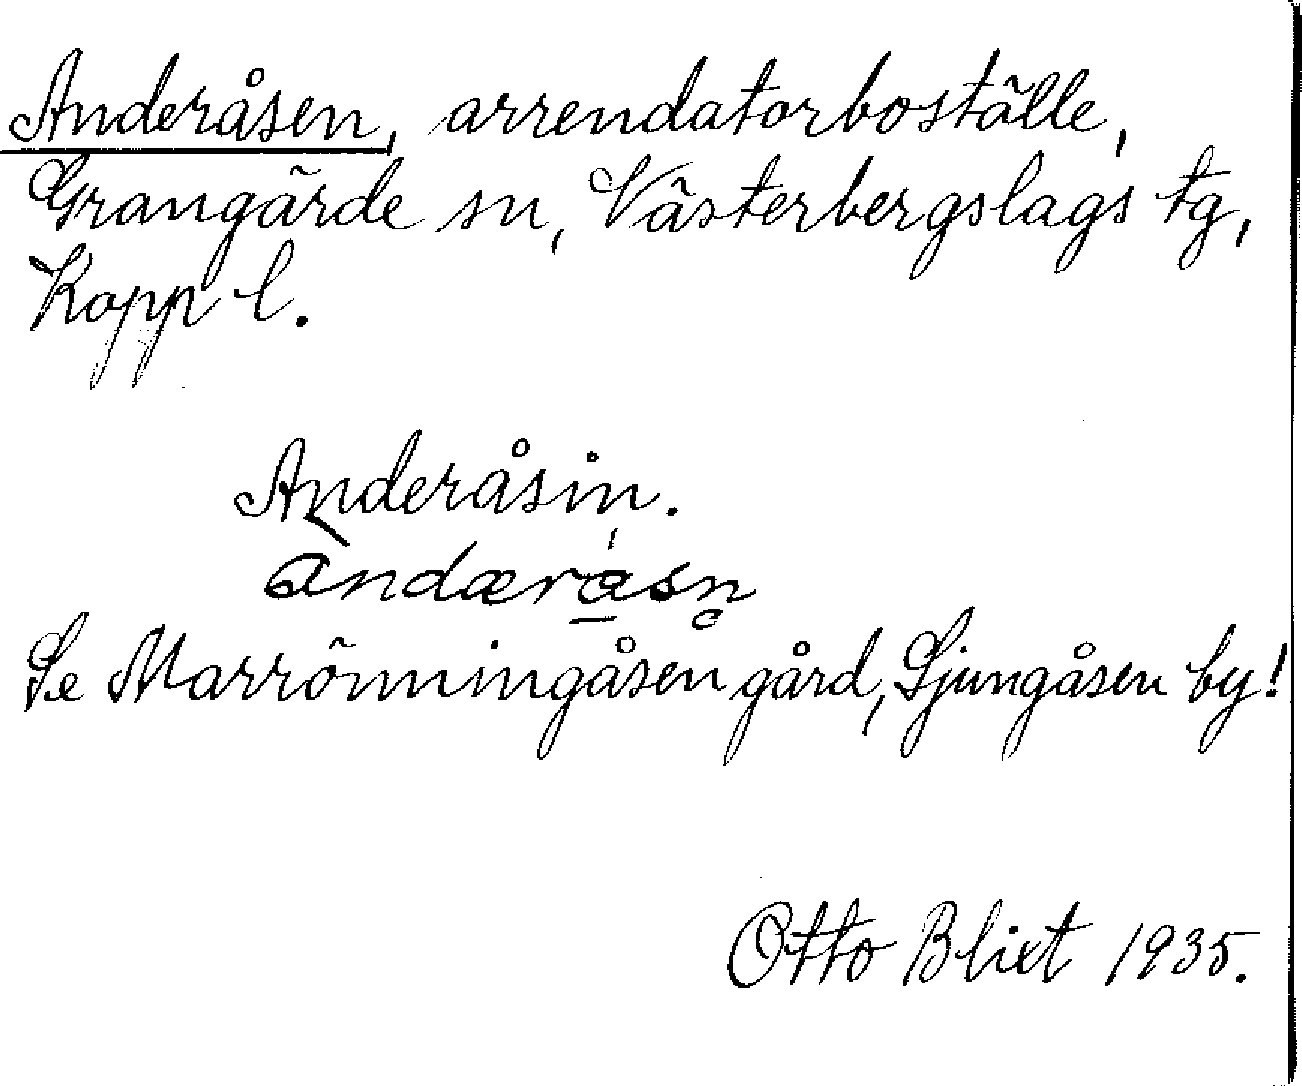 Anderåsen, arrendatorboställe,
Grangärde sn, Västerbergslags tg,
Kopp l.
Anderåsin.
andæråsn̥
Se Marrönningåsen gård, Ljungåsen by!
Otto Blixt 1935.